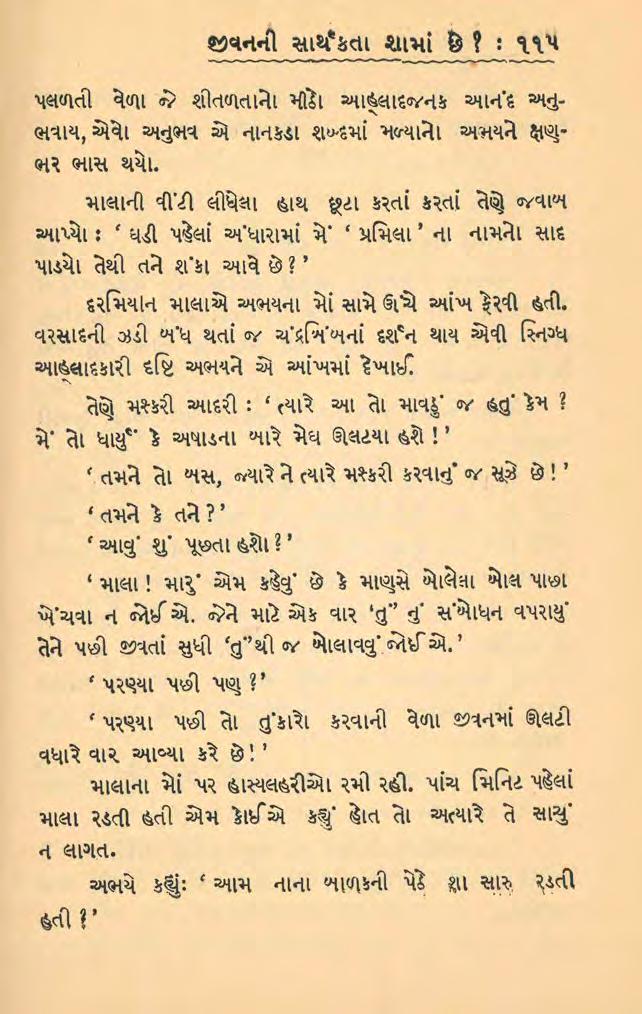 જીવનની સાર્થકતા શામાં છે? : ૧૧૫
પલળતી વેળા જે શીતળતાનો મીઠો આહ્લાદજનક આનંદ અનુ-
ભવાય, એવો અનુભવ એ નાનકડા શબ્દમાં મળ્યાનો અભયને ક્ષણ-
ભર ભાસ થયો.
માલાની વીંટી લીધેલા હાથ છૂટા કરતાં કરતાં તેણે જવાબ
આપ્યો : ‘ ઘડી પહેલાં અંધારામાં મેં ‘ પ્રમિલા ’ ના નામનો સાદ
પાડ્યો તેથી તને શંકા આવે છે? ’
દરમિયાન માલાએ અભયના મોં સામે ઊંચે આંખ ફેરવી હતી.
વરસાદની ઝડી બંધ થતાં જ ચંદ્રબિંબનાં દર્શન થાય એવી સ્નિગ્ધ
આહ્લાદકારી દૃષ્ટિ અભયને એ આંખમાં દેખાઈ.
તેણે મશ્કરી આદરી : ‘ ત્યારે આ તો માવઠું જ હતું કેમ ?
મેં તો ધાર્યું કે અષાડના બારે મેઘ ઊલટયા હશે ! ’
‘ તમને તો બસ, જ્યારે ને ત્યારે મશ્કરી કરવાનું જ સૂઝે છે! ’
‘ તમને કે તને? ’
‘ આવું શું પૂછતા હશો? ’
‘ માલા ! મારું એમ કહેવું છે કે માણસે બોલેલા બોલ પાછા
ખેંચવા ન જોઈએ. જેને માટે એક વાર ‘તું’ નું સંબોધન વપરાયું
તેને પછી જીવતાં સુધી ‘તું’થી જ બોલાવવું જોઈએ. ’
‘ પરણ્યા પછી પણ ? ’
‘ પરણ્યા પછી તો તુંકારો કરવાની વેળા જીવનમાં ઊલટી
વધારે વાર આવ્યા કરે છે! ’
માલાના મોં પર હાસ્યલહરીઓ રમી રહી. પાંચ મિનિટ પહેલાં
માલા રડતી હતી એમ કોઈએ કહ્યું હોત તો અત્યારે તે સાચું
ન લાગત.
અભયે કહ્યું: ‘ આમ નાના બાળકની પેઠે શા સારુ રડતી
હતી ? ’